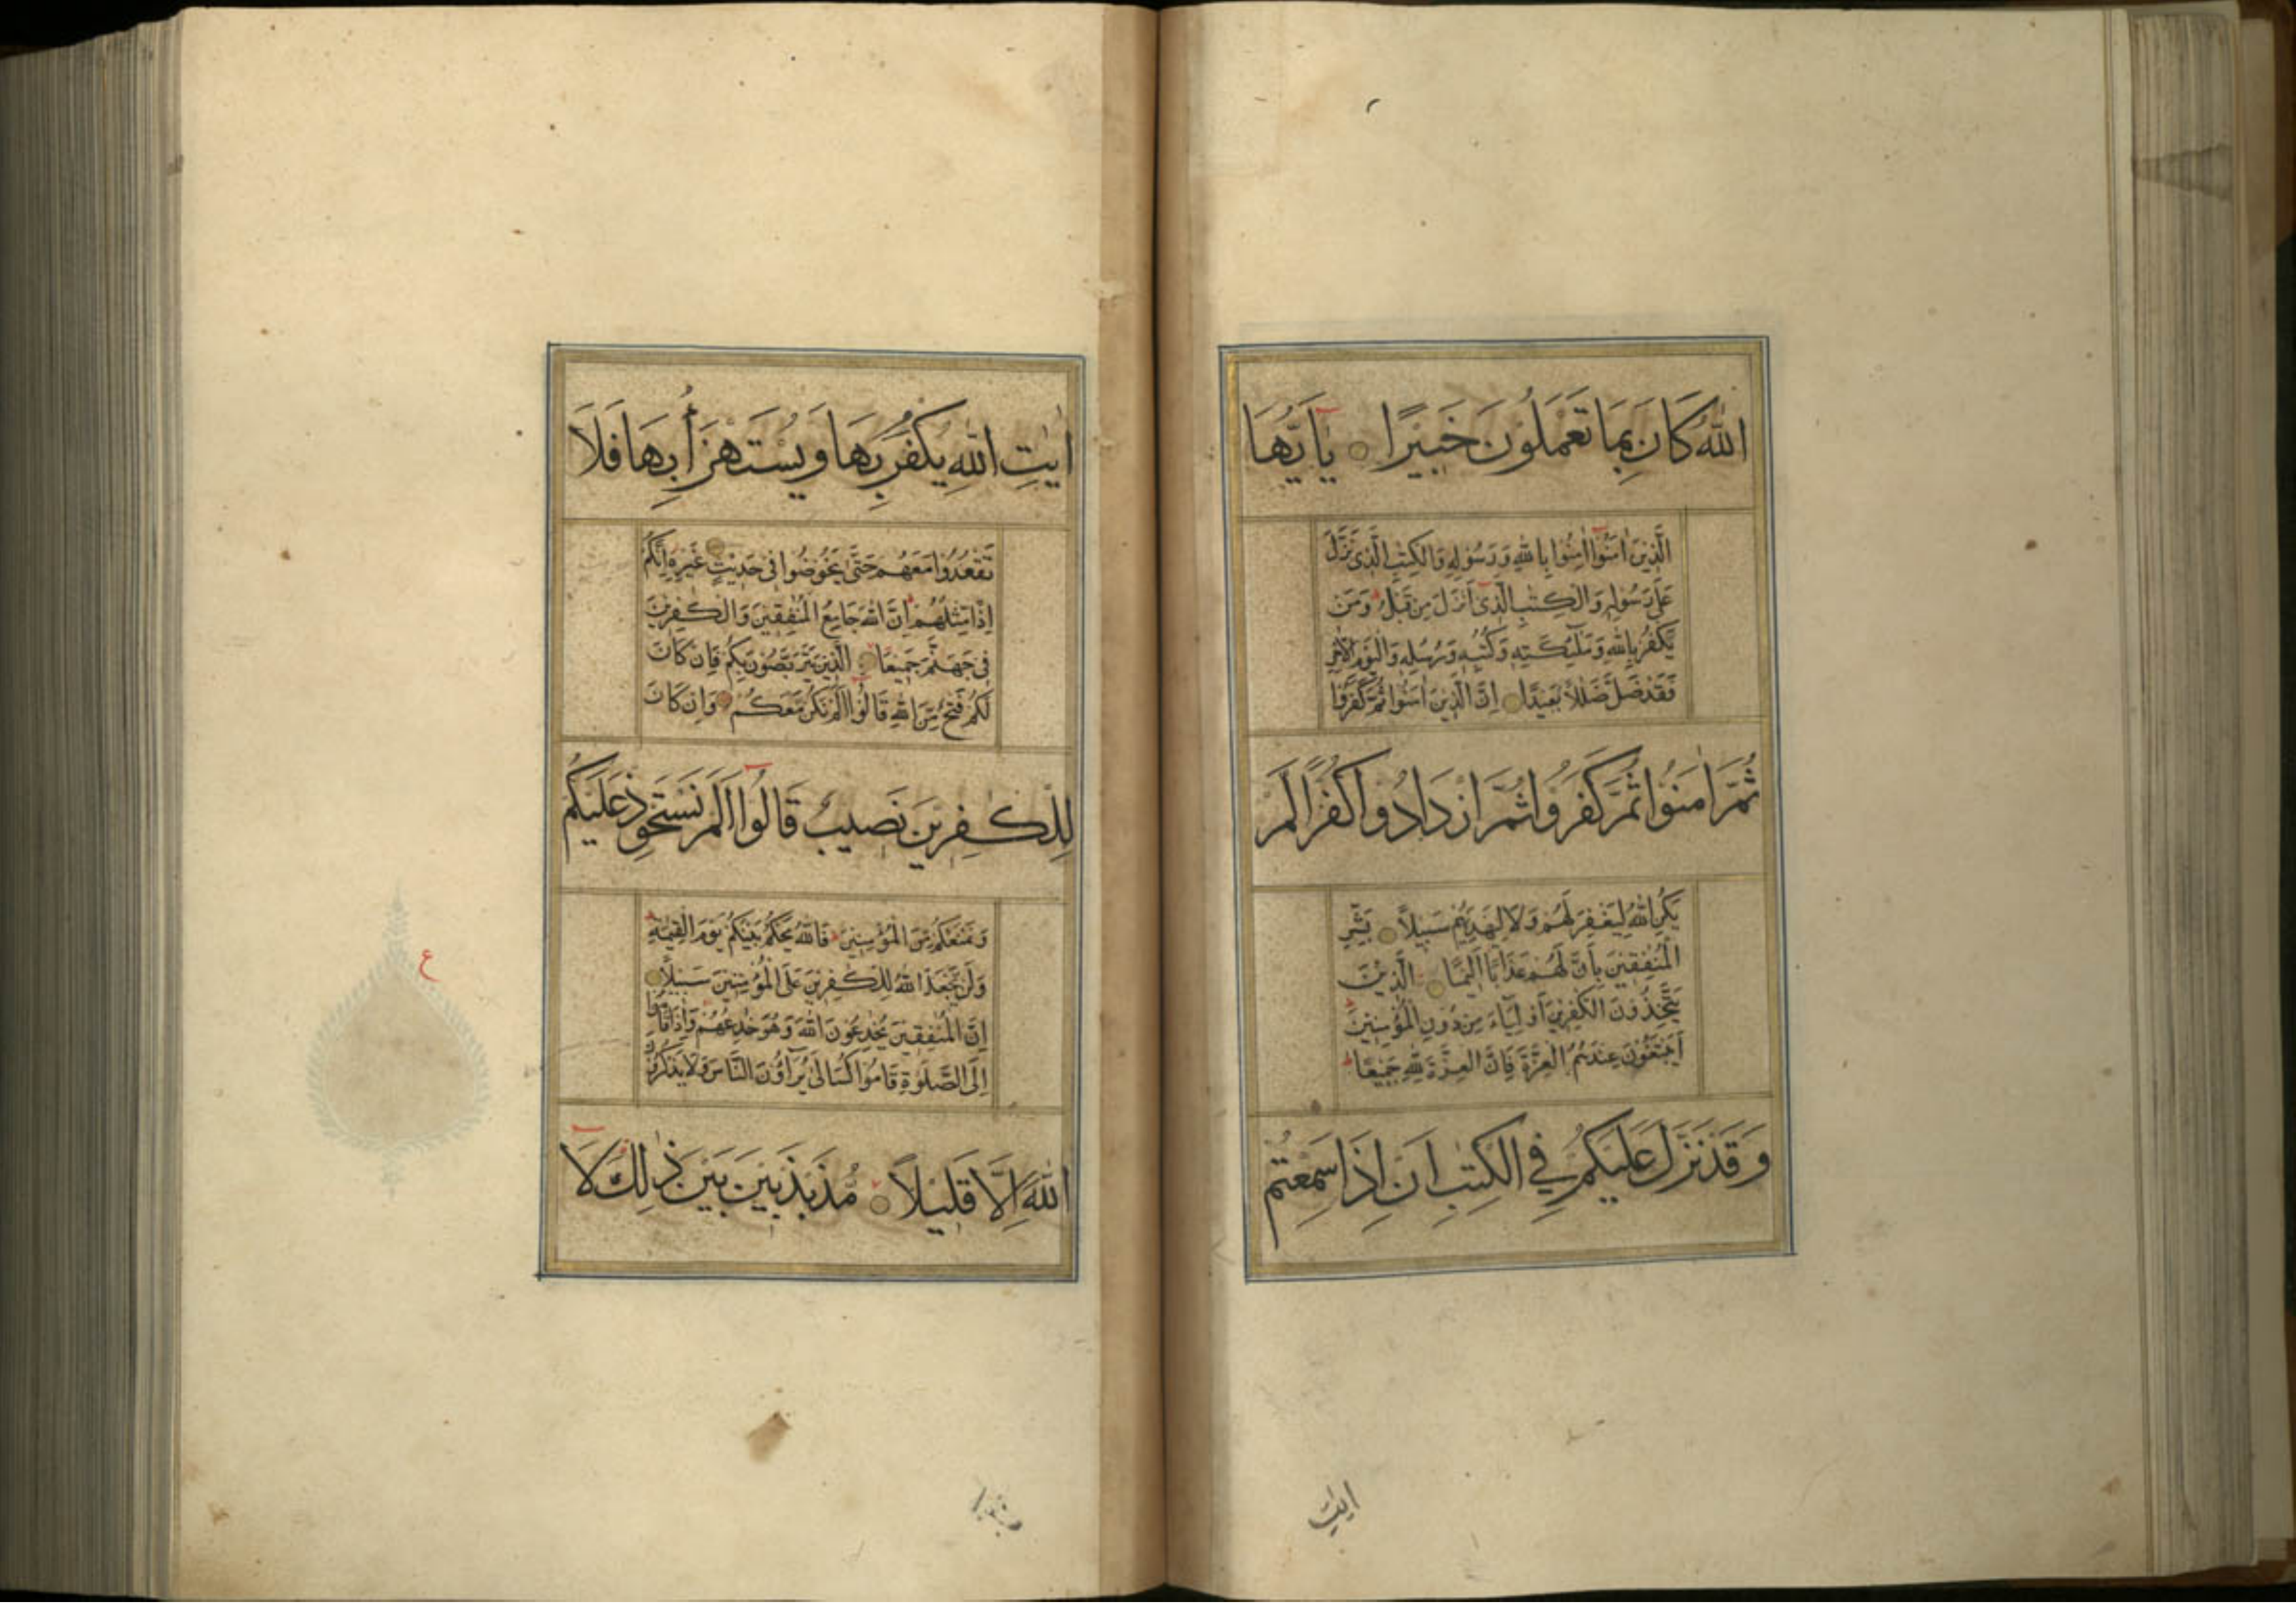 اللهَ كَانَ بِمَا تَعْمَلُوْنَ خَبِيْرًا يٰۤاَيُّهَا
الَّذِيْنَ اٰمَنُوْۤا اٰمِنُوْا بِاللهِ وَرَسُوْلِهٖ وَالْكِتٰبِ الَّذِىْ نَزَّلَ
عَلٰى رَسُوْلِهٖ وَالْكِتٰبِ الَّذِىْۤ اَنْزَلَ مِنْ قَبْلُ وَمَنْ
يَّكْفُرْ بِاللهِ وَمَلٰٓئِكَتِهٖ وَكُتُبِهٖ وَرُسُلِهٖ وَالْيَوْمِ الْاٰخِرِ
فَقَدْ ضَلَّ ضَلٰلًا بَعِيْدًا اِنَّ الَّذِيْنَ اٰمَنُوْا ثُمَّ كَفَرُوْا
ثُمَّ اٰمَنُوْا ثُمَّ كَفَرُوْا ثُمَّ ازْدَادُوْا كُفْرًا لَّمْ
يَكُنِ اللهُ لِيَغْفِرَ لَهُمْ وَلَا لِيَهْدِيَهُمْ سَبِيْلًا بَشِّرِ
الْمُنٰفِقِيْنَ بِاَنَّ لَهُمْ عَذَابًا اَلِيْمًا الَّذِيْنَ
يَتَّخِذُوْنَ الْكٰفِرِيْنَ اَوْلِيَآءَ مِنْ دُوْنِ الْمُؤْمِنِيْنَ
اَيَبْتَغُوْنَ عِنْدَهُمُ الْعِزَّةَ فَاِنَّ الْعِزَّةَ لِلّٰهِ جَمِيْعًا
وَقَدْ نَزَّلَ عَلَيْكُمْ فِي الْكِتٰبِ اَنْ اِذَا سَمِعْتُمْ
اٰيٰتِ
اٰيٰتِ اللهِ يُكْفَرُ بِهَا وَيُسْتَهْزَأُ بِهَا فَلَا
تَقْعُدُوْا مَعَهُمْ حَتّٰى يَخُوْضُوْا فِىْ حَدِيْثٍ غَيْرِهٖۤ اِنَّكُمْ
اِذًا مِّثْلُهُمْ اِنَّ اللهَ جَامِعُ الْمُنٰفِقِيْنَ وَالْكٰفِرِيْنَ
فِىْ جَهَنَّمَ جَمِيْعًا الَّذِيْنَ يَتَرَبَّصُوْنَ بِكُمْ فَاِنْ كَانَ
لَكُمْ فَتْحٌ مِّنَ اللهِ قَالُوْۤا اَلَمْ نَكُنْ مَّعَكُمْ وَاِنْ كَانَ
لِلْكٰفِرِيْنَ نَصِيْبٌ قَالُوْۤا اَلَمْ نَسْتَحْوِذْ عَلَيْكُمْ
وَنَمْنَعْكُمْ مِّنَ الْمُؤْمِنِيْنَ فَاللهُ يَحْكُمُ بَيْنَكُمْ يَوْمَ الْقِيٰمَةِ
وَلَنْ يَّجْعَلَ اللهُ لِلْكٰفِرِيْنَ عَلَى الْمُؤْمِنِيْنَ سَبِيْلًا
ع
اِنَّ الْمُنٰفِقِيْنَ يُخٰدِعُوْنَ اللهَ وَهُوَ خَادِعُهُمْ وَاِذَا قَامُوْۤا
اِلَى الصَّلٰوةِ قَامُوْا كُسَالٰى يُرَآءُوْنَ النَّاسَ وَلَا يَذْكُرُوْنَ
اللهَ اِلَّا قَلِيْلًا مُّذَبْذَبِيْنَ بَيْنَ ذٰلِكَ لَاۤ